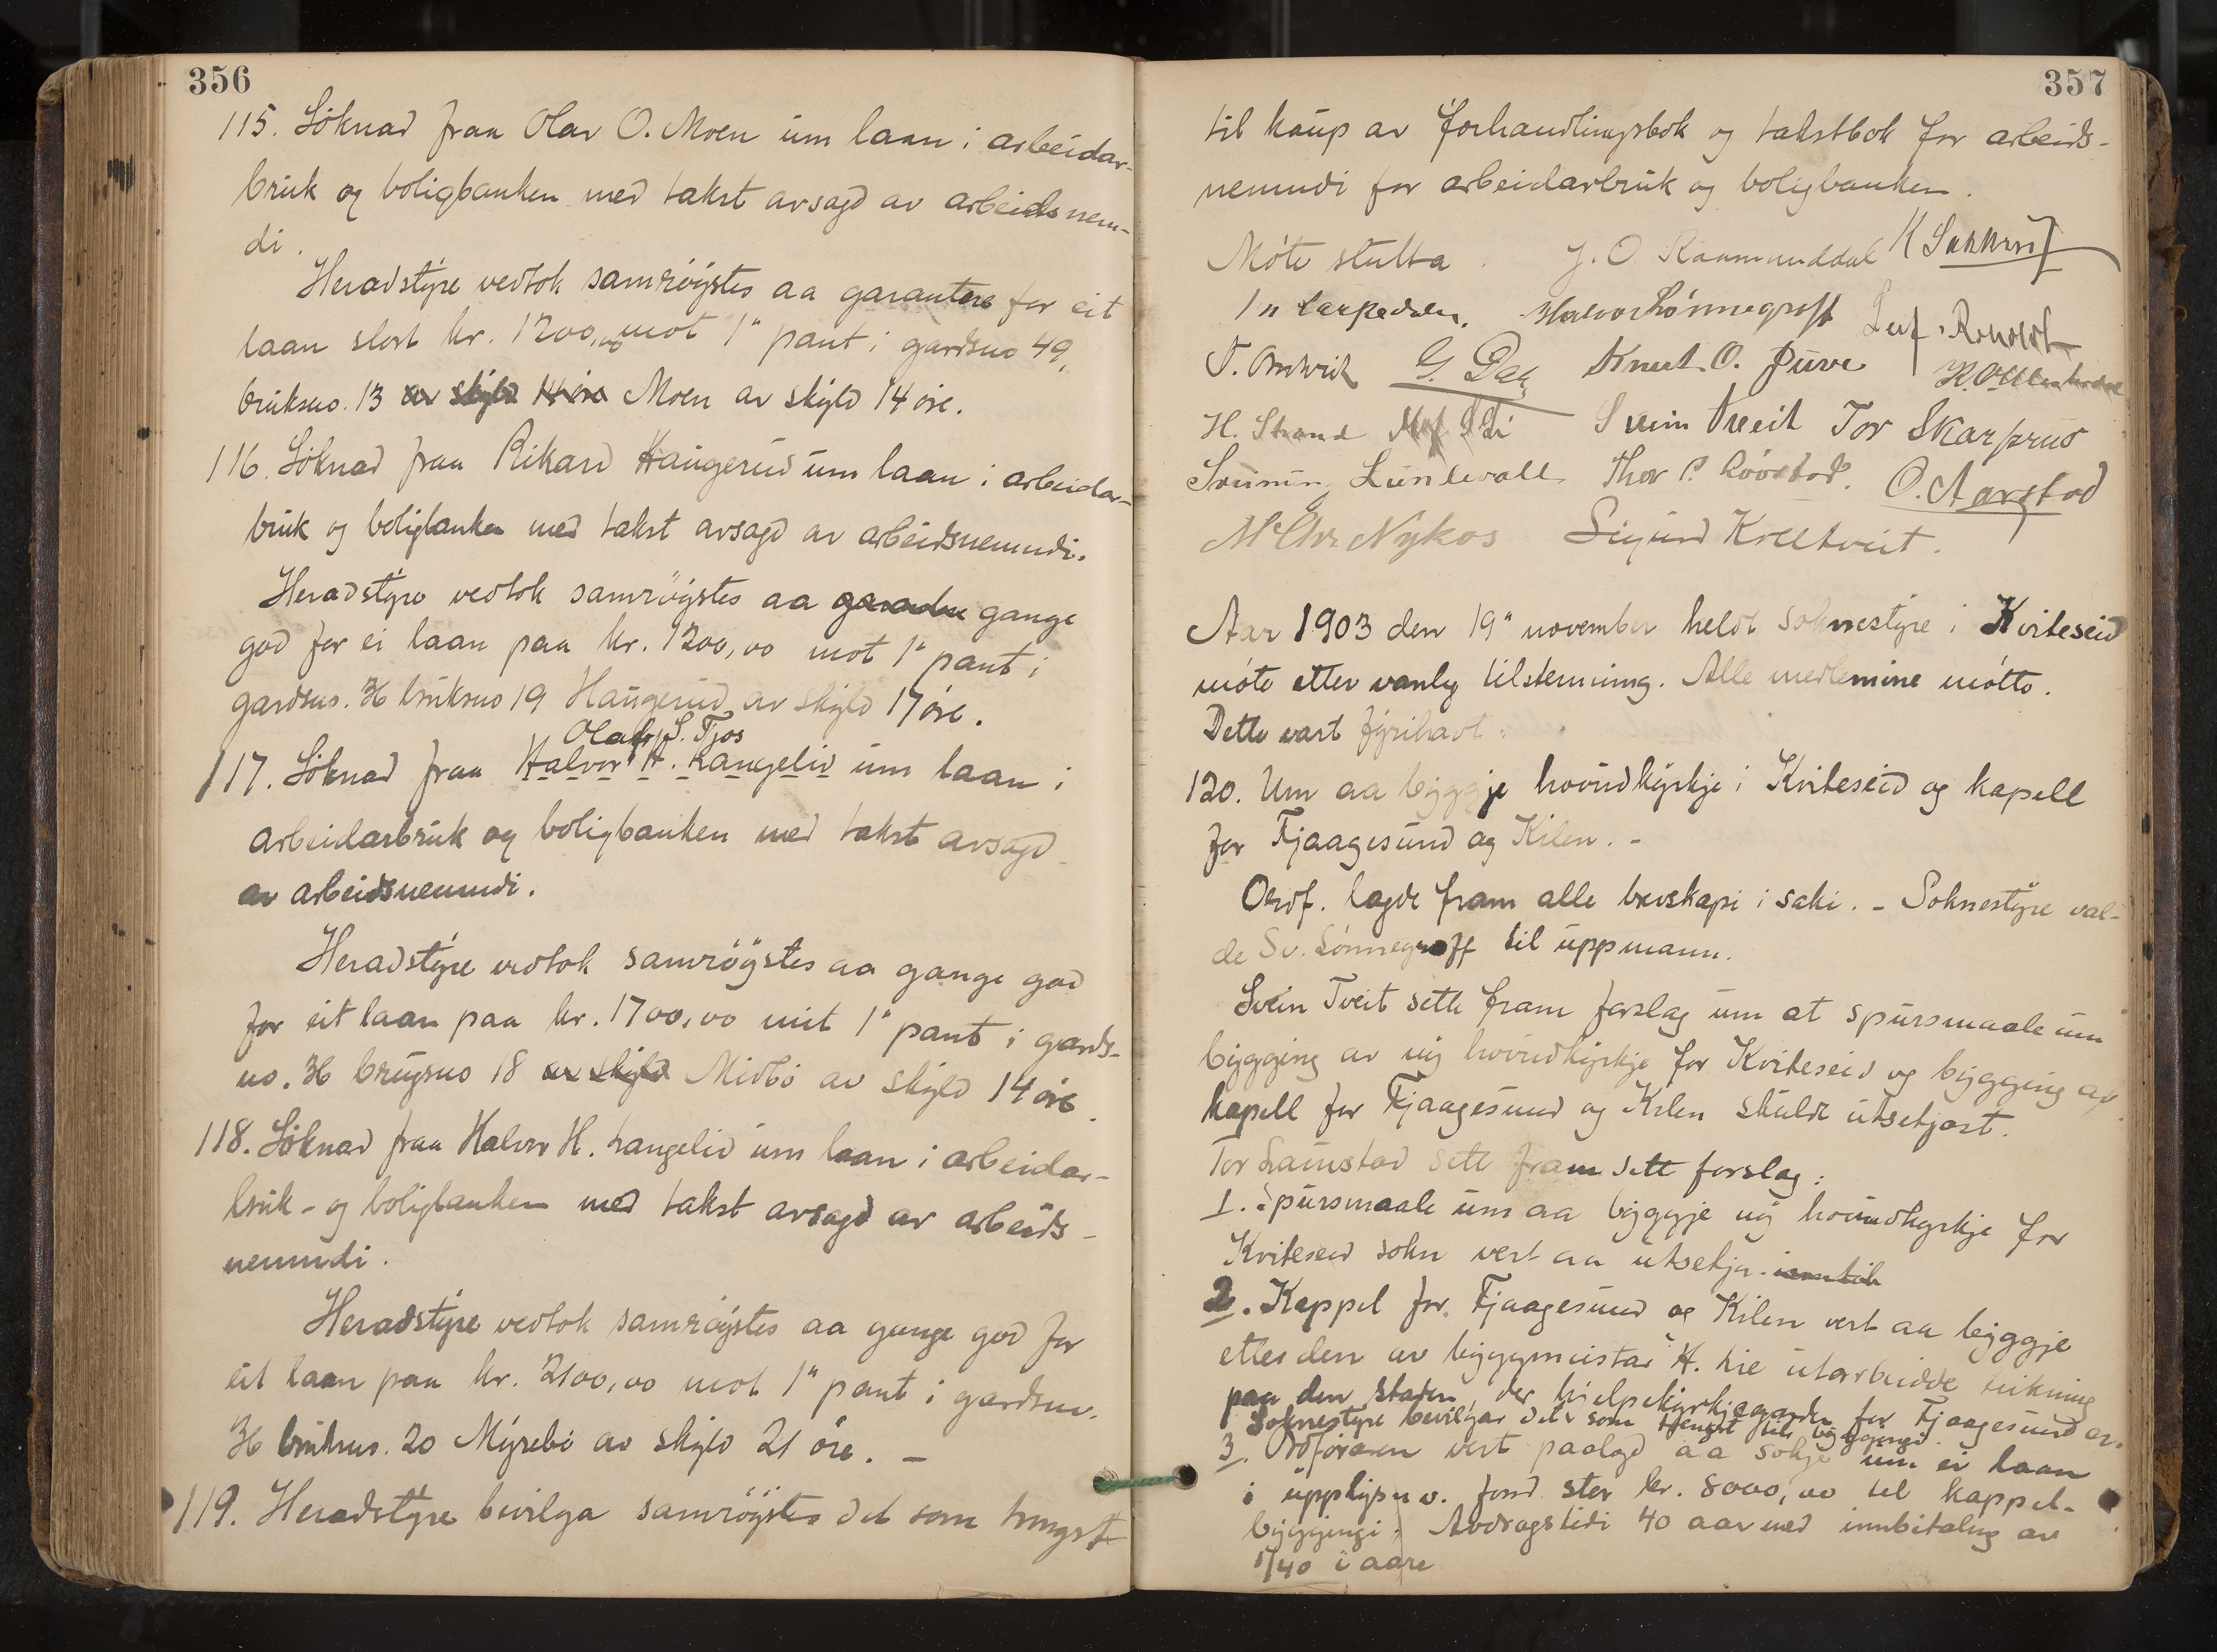 356
115. Söknad fraa Olav O. Moen um laan i arbeidar-
bruk og boligbanken med takst avsagd av arbeidsnem-
di.
Heradstyre vedtok samröystes aa garantere for eit
laan stort kr. 1200,00 mot 1" pant i gardsno 49,
bruksno. 13 av skyld 14 öre Moen av skyld 14 öre.
116. Söknad fraa Rikard Haugerud um laan i arbeidar-
bruk og boligbanken med takst avsagd av arbeidsnemndi.
Heradstyre vedtok samröystes aa gange
god for ei laan paa kr. 1200,00 mot 1" pant i
gardsno. 36 bruksno 19 Haugerud av skyld 17 öre.
Olaf S. Tjos
117. Söknad fraa Halvor H. Langelid um laan i
arbeidarbruk og boligbanken med takst avsagd
av arbeidsnemndi.
Heradstyre vedtok samröystes aa gange god
for eit laan paa kr. 1700,00 mit 1" pant i gards-
no. 36 brugsno 18 av skyld Midbö av skyld 14 öre.
118. Söknad fraa Halvor H. Langelid um laan i arbeidar-
bruk- og boligbanken med takst avsagd av arbeids-
nemndi.
Heradstyre vedtok samröystes aa gange god for
eit laan paa kr. 2100,00 mot 1" pant i gardsno.
36 bruksno. 20 Myrebö av skyld 21 öre. -
119. Heradstyre bevilga samröystes det som trengst
357
til kaup av forhandlingsbok og takstbok for arbeids-
nemndi for arbeidarbruk og boligbanken.
Möte slutta. J. O Raamunddal
Halvor Lönnegraff
G. Dal Knut O. Juve
H. Strand Svein Tveit Tor Skarprud
Lundevall Thor P. O. Aarstad
M Chr Nykos Sigurd Krelltveit.
Aar 1903 den 19" november heldt soknestyre i Kviteseid
möte etter vanleg tilstemning. Alle medlemine mötte.
Dette vart fyrihavt:
120. Um aa byggje hovudkyrkje i Kviteseid og kapell
for Fjaagesund og Kilen. -
Ordf. lagde fram alle brevskapi i saki. - Soknestyre val-
de Sv. Lönnegraff til uppmann.
Svein Tveit sette fram forslag um at spursmaale um
bygging av ny hovudkyrkje for Kviteseid og bygging av
kapell for Fjaagesund og Kilen skulde utsetjast.
Tor Laustad sett fram sitt forslag:
1. Spursmaale um aa byggje ny hovudkyrkje for
Kviteseid sokn vert aa utsetja. inntil
2. Kappel for Fjaagesund og Kilen vert aa byggje
etter den av byggmeistar H. Lie utarbeidde teikning
paa den staden, der hjelpekyrkjegarden for Fjaagesund er.
Soknestyre bevilgar det som trengst til byggjingi.
3. Ordföraren vert paalagd aa sökje um ei laan
i upplysn v. fond stor kr. 8000,00 til kappel-
byggjingi. Avdragstidi 40 aar med innbitaling av
1/40 i aare